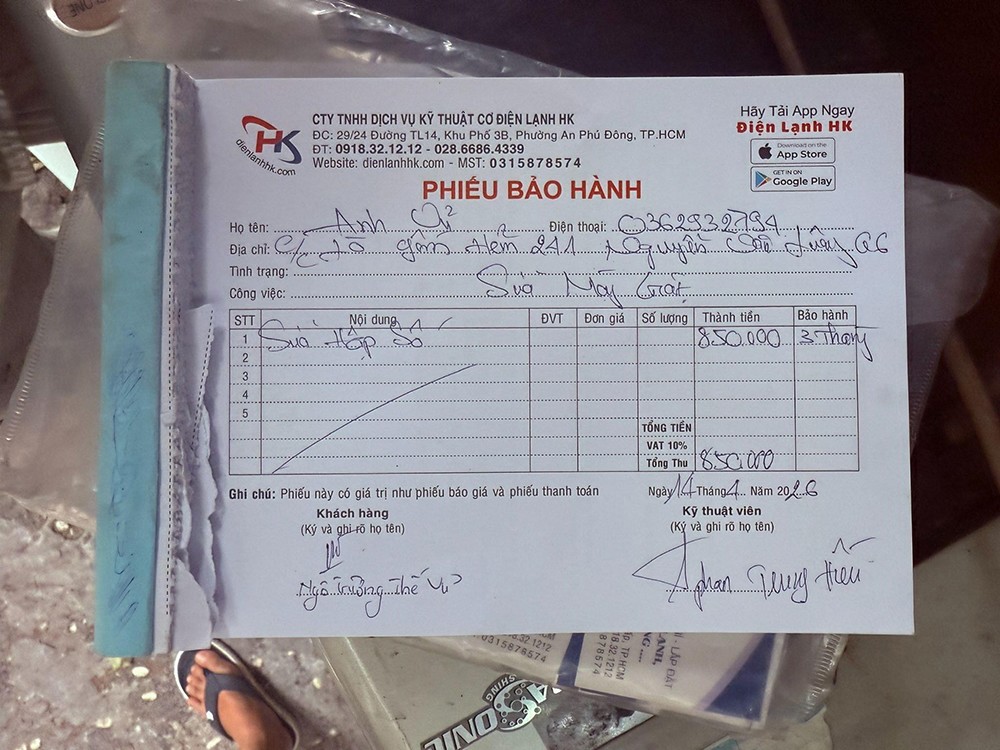 HK
dienlanhhk.com
CTY TNHH DỊCH VỤ KỸ THUẬT CƠ ĐIỆN LẠNH HK
ĐC: 29/24 Đường TL14, Khu Phố 3B, Phường An Phú Đông, TP.HCM
ĐT: 0918.32.12.12 - 028.6686.4339
Website: dienlanhhk.com - MST: 0315878574
Hãy Tải App Ngay
Điện Lạnh HK
Download on the
App Store
GET IN ON
Google Play
PHIẾU BẢO HÀNH
Họ tên: Anh Vĩ Điện thoại: 0362932794
Địa chỉ: C/C Lò Gốm Hẻm 241 Nguyễn Văn Luông Q6
Tình trạng:
Công việc: Sửa Máy Giặt
STT Nội dung ĐVT Đơn giá Số lượng Thành tiền Bảo hành
1 Sửa Hộp Số 850.000 3 Tháng
2
3
4
5
TỔNG TIỀN
VAT 10%
Tổng Thu 850.000
Ghi chú: Phiếu này có giá trị như phiếu báo giá và phiếu thanh toán
Ngày 14 Tháng 4 Năm 2026
Khách hàng
(Ký và ghi rõ họ tên)
Kỹ thuật viên
(Ký và ghi rõ họ tên)
Ngô Trường Thế Vĩ
Phan Trung Hiếu
0315878574
TP.HCM
SHING